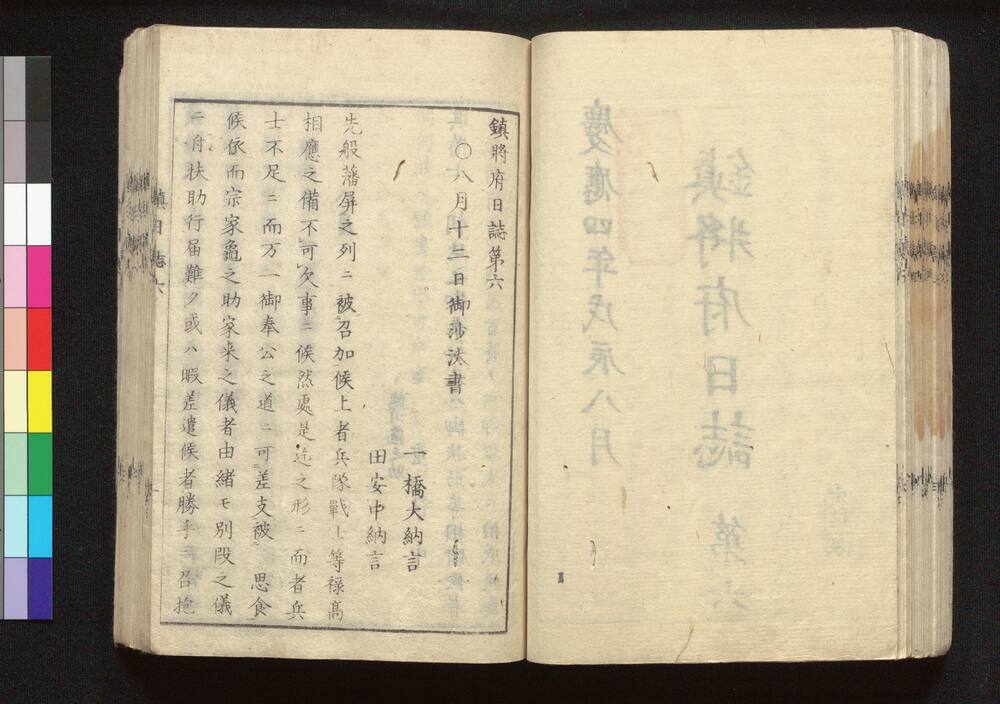 鎮將府日誌第六
〇八月十三日御沙汰書
一橋大納言
田安中納言
先般藩屏之列ニ被召加候上者兵隊戰士等祿高
相應之備不可欠事ニ候然處是迄之形ニ而者兵
士不足ニ而万一御奉公之道ニ可差支被思食
候依而宗家龜之助家来之儀者由緒モ別段之儀
ニ付扶助行届難ク或ハ暇差遣候者勝手ニ召抱
鎮日誌六
慶應四年戊辰八月
鎮將府日誌第六